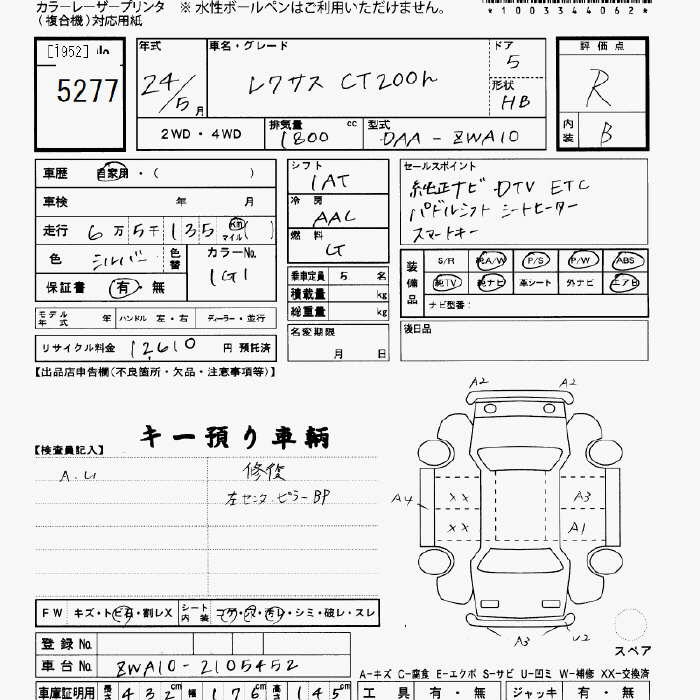 カラーレーザープリンタ ※ 水性ボールペンはご利用いただけません。
(複合機)対応用紙
*100344062*
[1952]
5277
年式
24/5月
車名・グレード
レクサス CT200h
ドア
5
形状
HB
評価点
R
内装
B
2WD・4WD
排気量
1800 cc
型式
DAA-ZWA10
車歴 自家用・( )
車検 年 月
走行 6万5千135 km マイル( )
色 シルバー 色替
カラーNo.
1G1
保証書 有・無
モデル年式 年 ハンドル 左・右 ディーラー・並行
リサイクル料金 12,610 円 預託済
シフト
1AT
冷房
AAC
燃料
G
乗車定員 5 名
積載量 kg
総重量 kg
名変期限
月 日
セールスポイント
純正ナビ DTV ETC
パドルシフト シートヒーター
スマートキー
装備品
S/R 純A/W P/S P/W ABS
純TV 純ナビ 革シート 外ナビ エアB
ナビ型番:
後日品
【出品店申告欄(不良箇所・欠品・注意事項等)】
キー預り車輌
【検査員記入】
A.U
修復
左センターピラーBP
A2
A2
A4
XX
A3
XX
A1
A3
U2
スペア
FW キズ・トビ石・割レX
シート内装 コゲ・穴・汚レ・シミ・破レ・スレ
登録No.
車台No. ZWA10-2105452
A-キズ C-腐食 E-エクボ S-サビ U-凹ミ W-補修 XX-交換済
車庫証明用 長さ 432cm 幅 176cm 高さ 145cm
工具 有・無 ジャッキ 有・無